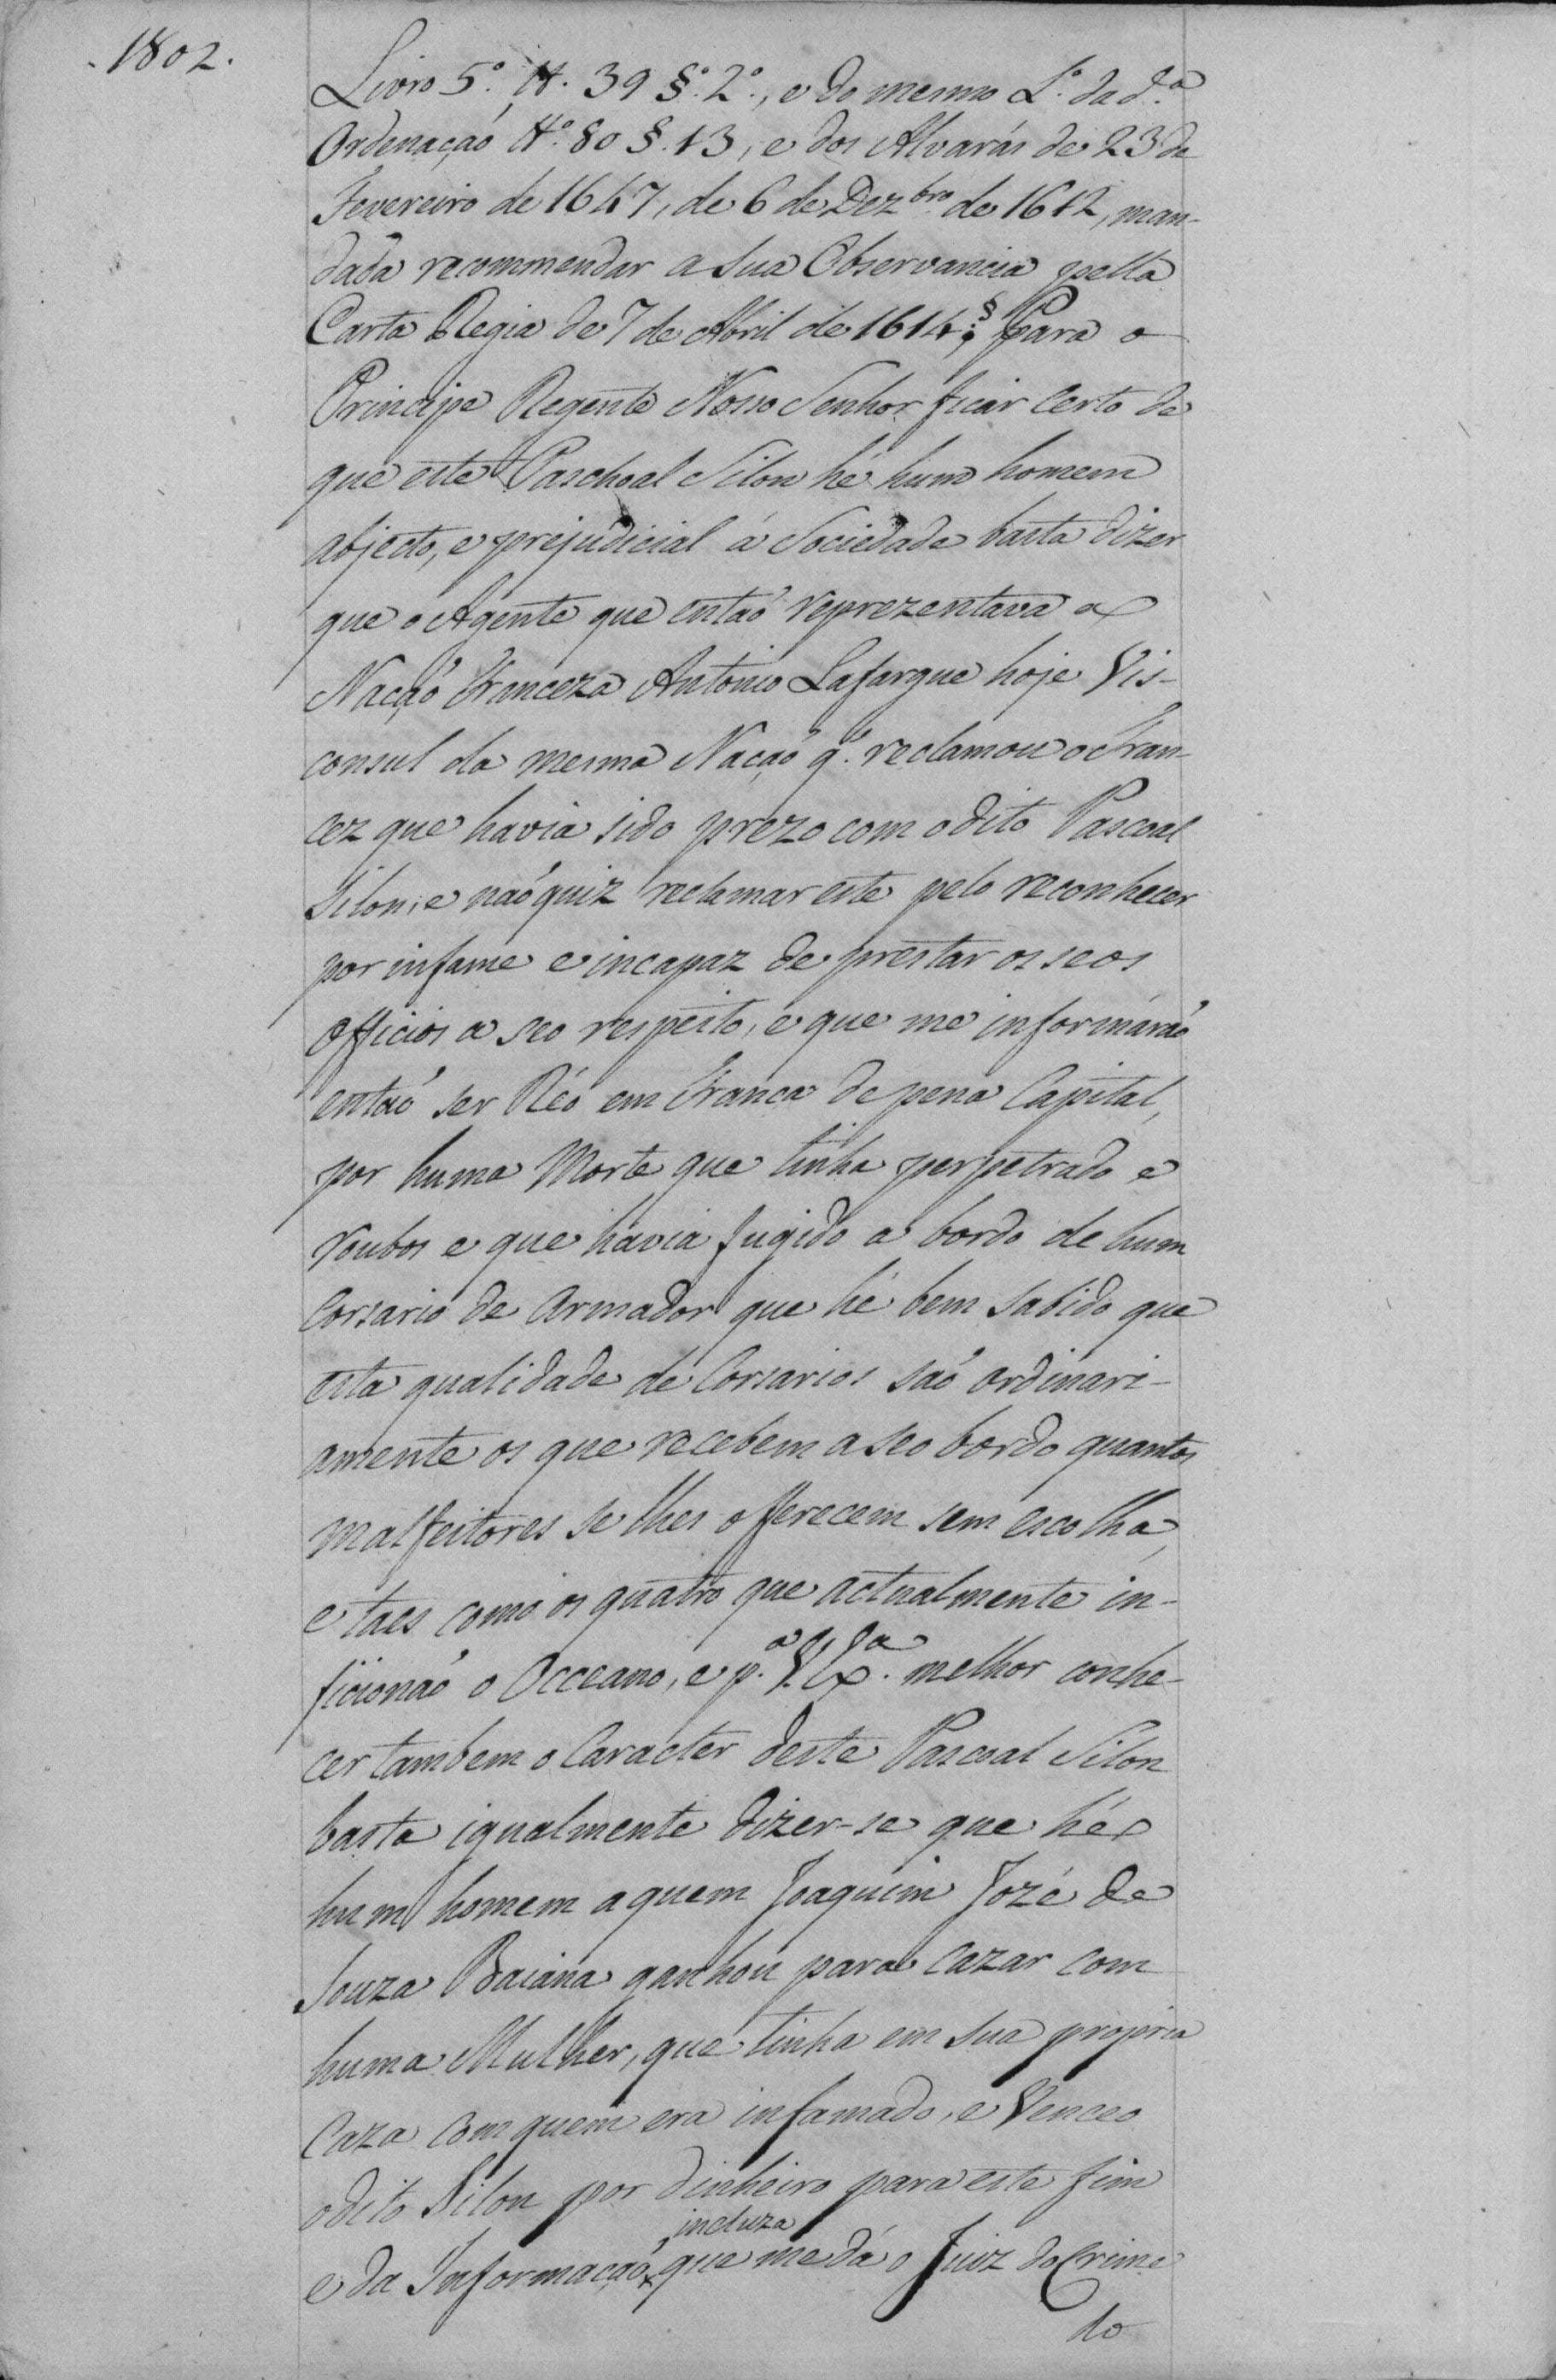 1802.
Livro 5.º tt. 39 §.º 2.º, e do mesmo L.º da d.ª
Ordenação tt.º 80 §. 13, e dos Alvarás de 23 de
Fevereiro de 1647, de 6 de Dezbro. de 1612, man-
dada recommendar a sua Observancia pella
Carta Regia de 7 de Abril de 1614; § Para o
Principe Regente Nosso Senhor ficar certo de
que este Paschoal Silon hé hum homem
abjecto, e prejudicial á Sociedade basta dizer
que o Agente que então reprezentava a
Nação Franceza Antonio Lafargue hoje Vis-
consul da mesma Nação q.' reclamou o Fran-
cez que havia sido prezo com o dito Pascoal
Silon; e não quiz reclamar este pelo reconhecer
por infame e incapaz de prestar os seos
Officios a seo respeito, e que me informárão
então ser Réo em França de pena Capital,
por huma Morte que tinha perpetrado e
roubos e que havia fugido a bordo de hum
Corsario de Armador que hé bem sabido que
esta qualidade de Corsarios são ordinari-
amente os que recebem a seo bordo quantos
malfeitores se lhes offerecem sem escolha,
e taes como os quatro que actualmente in-
ficionão o Occeano, e p.ª V. Ex.ª melhor conhe-
cer tambem o Caracter deste Pascoal Silon
basta igualmente dizer-se que hé
hum homem a quem Joaquim Jozé de
Souza Baiana ganhou para cazar com
huma Mulher, que tinha em sua propria
Caza com quem era infamado, e Venceo
o dito Silon por dinheiro para este fim
e da Informação incluza que me dá o Juiz do Crime
do